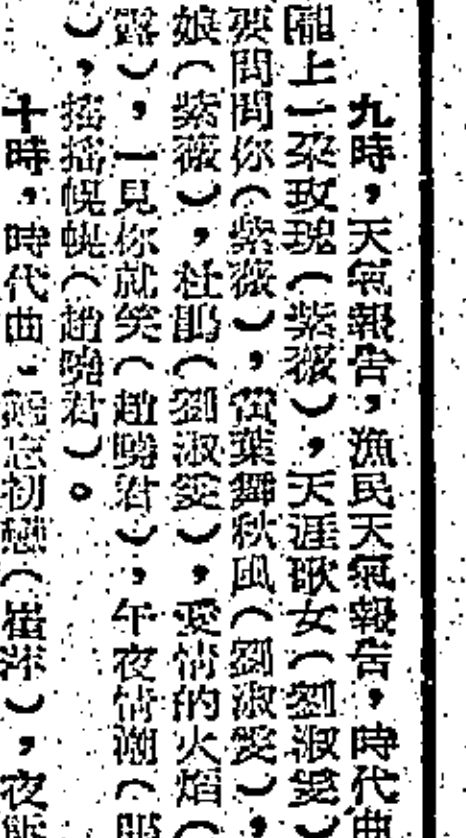 九時,天氣報告,漁民天氣報告,時代曲
隴上一朶玫瑰(紫薇),天涯歌女(劉淑雯)
要問問你(紫薇),葉舞秋風(劉淑雯),
娘(紫薇),杜鵑(劉淑雯),愛情的火焰(
露),一見你就笑(趙曉君),午夜情潮(
),搖搖幌幌(趙曉君)。
十時,時代曲:難忘初戀(崔萍),夜